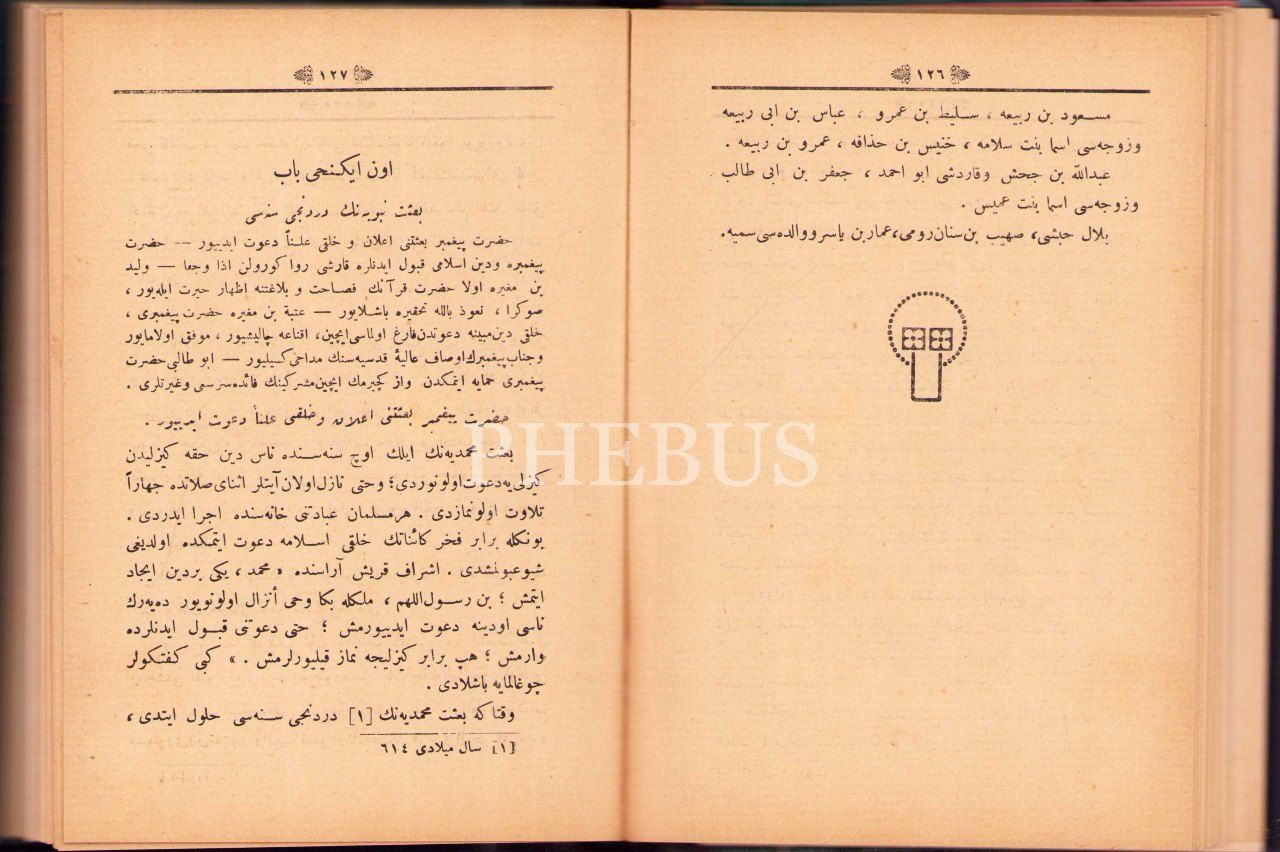 ١٢٦
مسعود بن ربیعه ، سلیط بن عمرو ، عباس بن ابی ربیعه
وزوجه‌سی اسما بنت سلامه ، خنیس بن حذافه ، عمرو بن ربیعه .
عبدالله بن جحش وقاردشی ابو احمد ، جعفر بن ابی طالب
وزوجه‌سی اسما بنت عمیس .
بلال حبشی، صهیب بن سنان رومی، عمار بن یاسر ووالده‌سی سمیه.
١٢٧
اون ایکنجی باب
بعثت نبویه‌نك دردنجی سنه‌سی
حضرت پیغمبر بعثتنی اعلان و خلقی علناً دعوت ایدییور — حضرت
پیغمبره ودین اسلامی قبول ایدنلره قارشی روا کورولن اذا وجفا — ولید
بن مغیره اولا حضرت قرآنك فصاحت و بلاغتنه اظهار حیرت ایله‌یور ،
صوکرا ، نعوذ بالله تحقیره باشلایور — عتبة بن مغیره حضرت پیغمبری ،
خلقی دین مبینه دعوتدن فارغ اولماسی ایچین، اقناعه چالیشیور ، موفق اولامایور
وجناب پیغمبرك اوصاف عالیهٔ قدسیه‌سنك مداحی کسیلیور — ابو طالبی حضرت
پیغمبری حمایه ایتمکدن واز کچیرمك ایچین مشرکینك فائده‌سز سعی وغیرتلری .
حضرت پیغمبر بعثتنی اعلان وخلقی علناً دعوت ایدییور .
بعثت محمدیه‌نك ایلك اوچ سنه‌سنده ناس دین حقه کیزلیدن
کیزلی‌یه دعوت اولونوردی؛ وحتی نازل اولان آیتلر اثنای صلاتده جهاراً
تلاوت اولونمازدی . هر مسلمان عبادتنی خانه‌سنده اجرا ایدردی .
بونکله برابر فخر کائناتك خلقی اسلامه دعوت ایتمکده اولدیغی
شیوعبولمشدی . اشراف قریش آراسنده « محمد ، یکی بردین ایجاد
ایتمش ؛ بن رسول‌اللهم ، ملکله بکا وحی أنزال اولونویور ده‌یه‌رك
ناسی اودینه دعوت ایدییورمش ؛ حتی دعوتنی قبول ایدنلرده
وارمش ؛ هپ برابر کیزلیجه نماز قیلیورلرمش . » کبی کفتکولر
چوغالمایه باشلادی .
وقتا که بعثت محمدیه‌نك [١] دردنجی سنه‌سی حلول ایتدی ،
[١] سال میلادی ٦١٤
PHEBUS